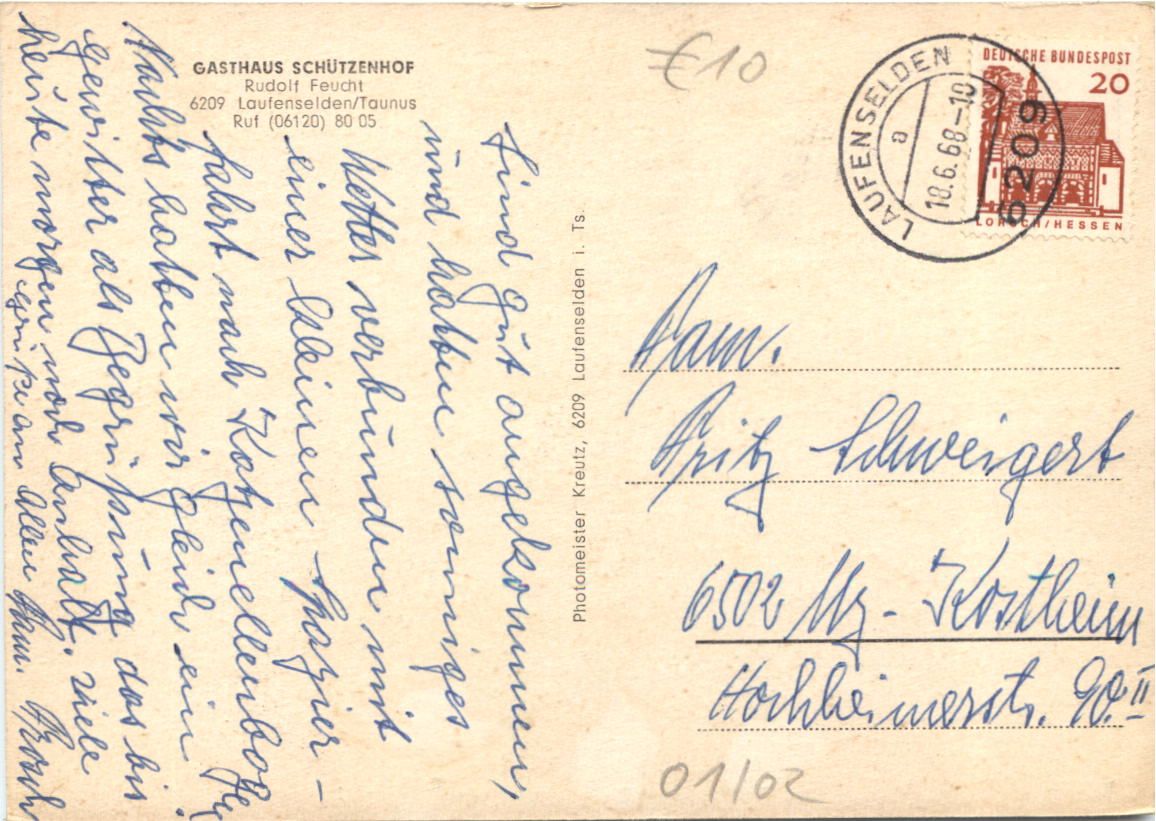 GASTHAUS SCHÜTZENHOF
Rudolf Feucht
6209 Laufenselden/Taunus
Ruf (06120) 80 05
Sind gut angekommen,
und hatten sonniges
Wetter verbunden mit
einer kleinen Spazier-
fahrt nach Katzenellenbogen
Nachts hatten wir gleich ein
Gewitter als Begrüßung das bis
heute morgen noch anhält. Viele
Grüße an Allen Fam.
Photomeister Kreutz, 6209 Laufenselden i. Ts.
€10
LAUFENSELDEN
a
18.6.68-10
6209
DEUTSCHE BUNDESPOST
20
LORSCH/HESSEN
Fam.
Fritz Schweigert
6502 Mz-Kostheim
Hochheimerstr. 90.II
01/02